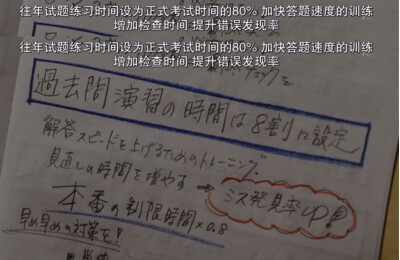 往年试题练习时间设为正式考试时间的80% 加快答题速度的训练
增加检查时间 提升错误发现率
往年试题练习时间设为正式考试时间的80% 加快答题速度的训练
增加检查时间 提升错误发现率
過去問演習の時間は8割に設定
解答スピードを上げるためのトレーニング
見直しの時間を増やす → ミス発見率UP!
本番の制限時間×0.8
早め早めの対策を!